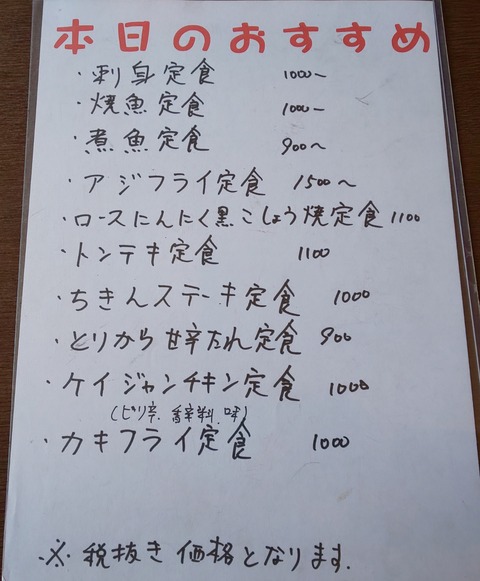 本日のおすすめ
・刺身定食 1000～
・焼魚定食 1000～
・煮魚定食 900～
・アジフライ定食 1500～
・ロースにんにく黒こしょう焼定食 1100
・トンテキ定食 1100
・ちきんステーキ定食 1000
・とりから甘辛たれ定食 900
・ケイジャンチキン定食 1000
(ピリ辛、香辛料、味)
・カキフライ定食 1000
※税抜き価格となります。